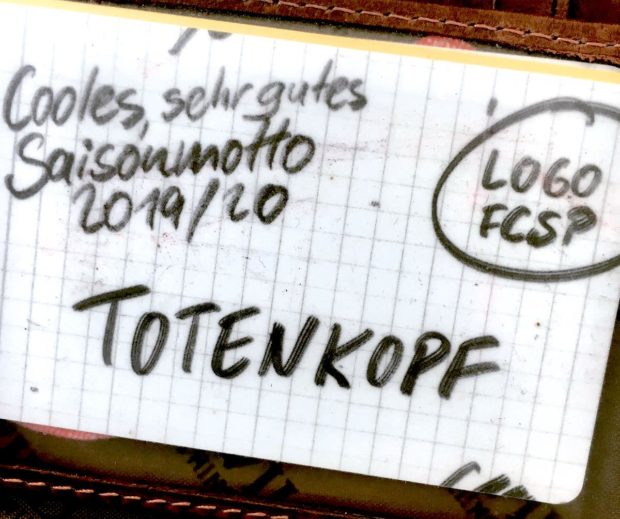 Cooles, sehr gutes
Saisonmotto
2019/20
LOGO
FCSP
TOTENKOPF